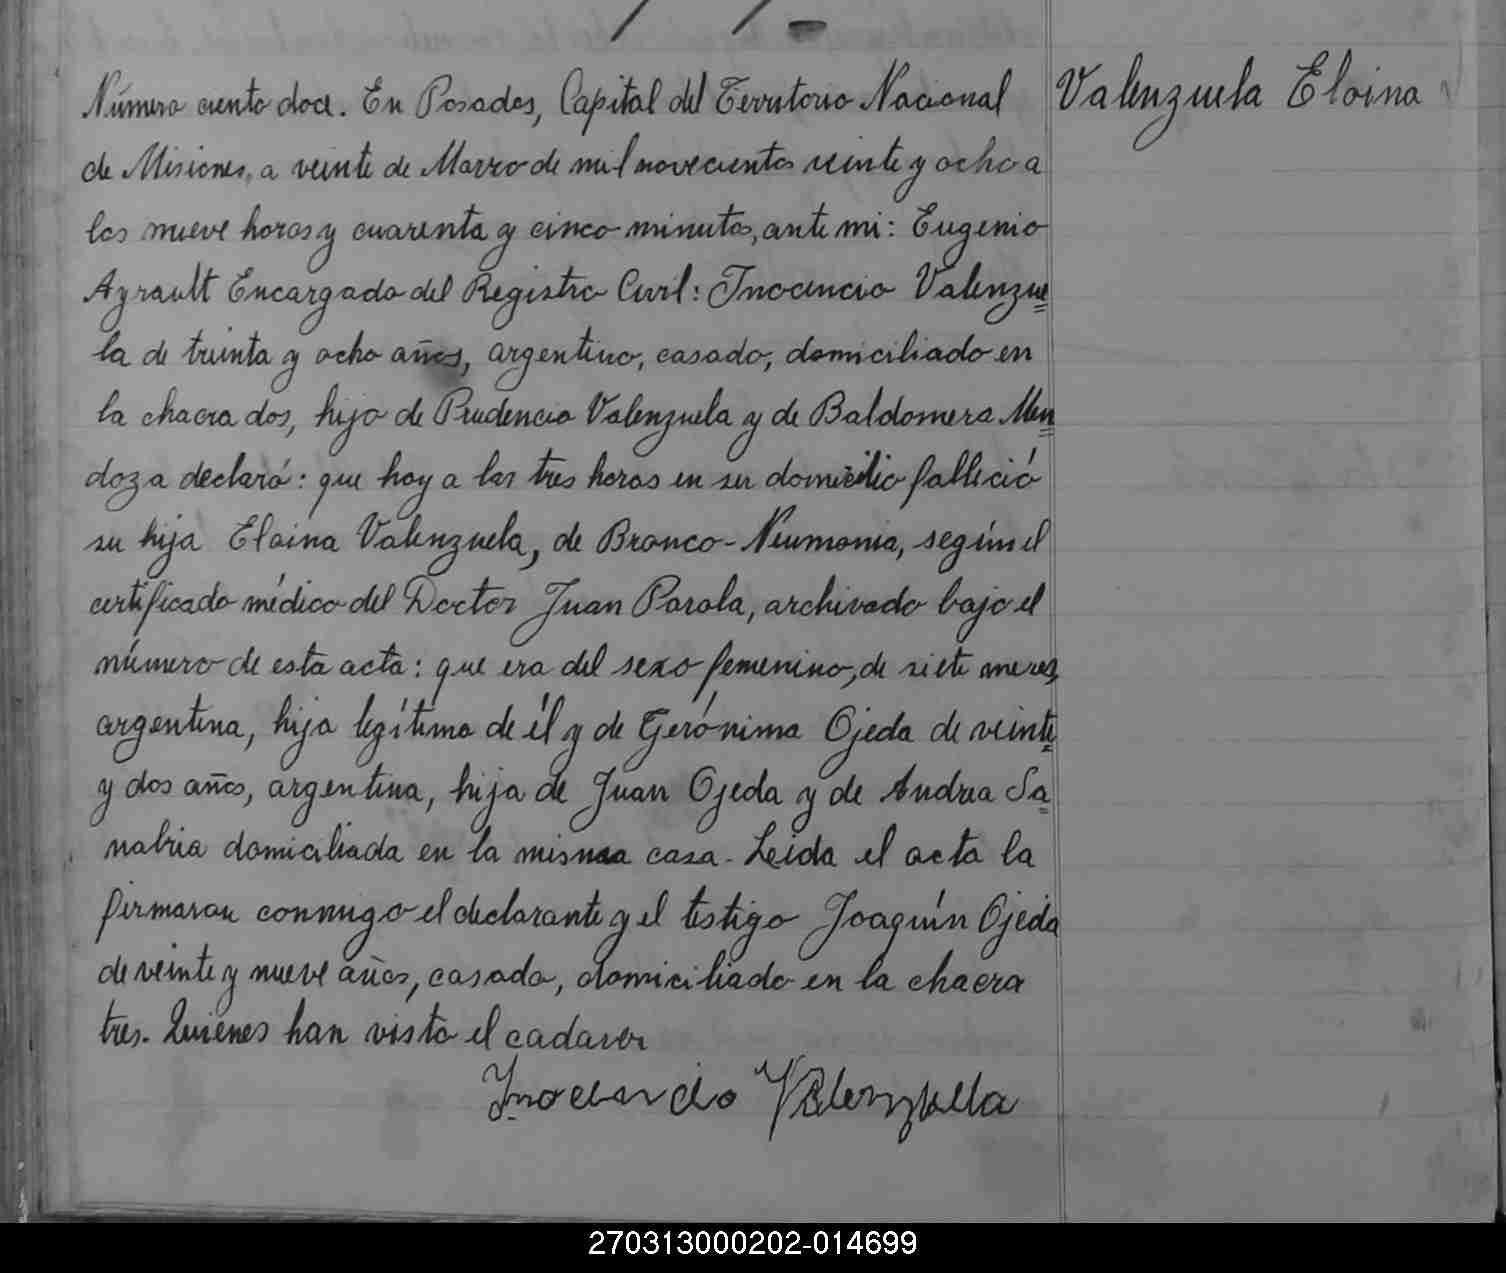 Número ciento doce. En Posadas, Capital del Territorio Nacional
Valenzuela Eloina
de Misiones, a veinte de Marzo de mil novecientos veinte y ocho a
las nueve horas y cuarenta y cinco minutos, ante mi: Eugenio
Ayrault Encargado del Registro Civil: Inocencio Valenzue
la de treinta y ocho años, argentino, casado, domiciliado en
la chacra dos, hijo de Prudencio Valenzuela y de Baldomera Men
doza declaró: que hoy a las tres horas en su domicilio falleció
su hija Eloina Valenzuela, de Bronco-Neumonia, según el
certificado médico del Doctor Juan Parola, archivado bajo el
número de esta acta: que era del sexo femenino, de siete meses,
argentina, hija legítima de él y de Gerónima Ojeda de veinte
y dos años, argentina, hija de Juan Ojeda y de Andrea Sa
nabria domiciliada en la misma casa. Leida el acta la
firmaron conmigo el declarante y el testigo Joaquín Ojeda
de veinte y nueve años, casado, domiciliado en la chacra
tres. Quienes han visto el cadaver
Inocencio Valenzuela
270313000202-014699